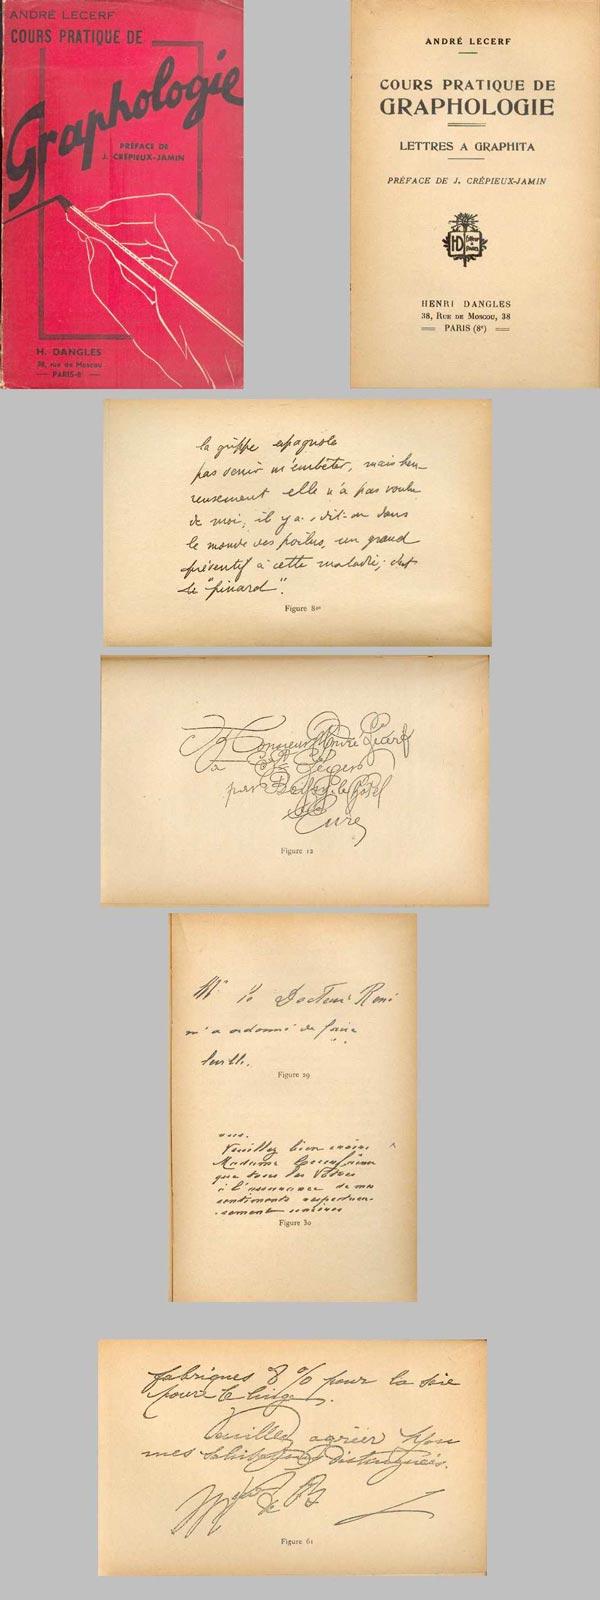 ANDRÉ LECERF
COURS PRATIQUE DE
Graphologie
PRÉFACE DE
J. CRÉPIEUX-JAMIN
H. DANGLES
38, rue de Moscou
PARIS-8
ANDRÉ LECERF
COURS PRATIQUE DE
GRAPHOLOGIE
LETTRES A GRAPHITA
PRÉFACE DE J. CRÉPIEUX-JAMIN
HD
HENRI DANGLES
38, RUE DE MOSCOU, 38
PARIS (8e)
la grippe espagnole
pas venir m'embêter, mais heu-
reusement elle n'a pas voulu
de moi, il y a, dit-on dans
le monde des poilus, un grand
préventif à cette maladie, c'est
le "pinard".
Figure 8
Monsieur André Lecerf
par
Eure
Figure 12
Mr le Docteur René
m'a ordonné de faire
Figure 29
Veuillez bien croire
Madame
que tous les
à l'assurance de mes
sentiments respectueu-
sement
Figure 30
fabriques 8 % pour la soie
pour le linge.
Veuillez agréer
mes Salutations distinguées.
de B
Figure 61